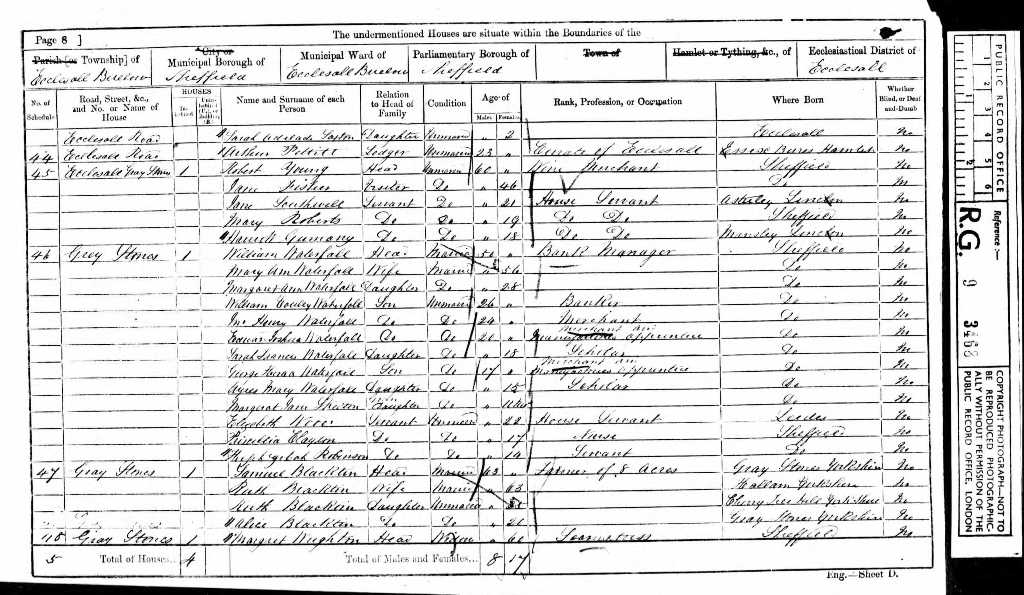 Page 8 ]
The undermentioned Houses are situate within the Boundaries of the
Parish [or Township] of
Ecclesall Bierlow
City or
Municipal Borough of
Sheffield
Municipal Ward of
Ecclesall Bierlow
Parliamentary Borough of
Sheffield
Town of
Hamlet or Tything, &c., of
Ecclesiastical District of
Ecclesall
No. of Schedule
Road, Street, &c., and No. or Name of House
HOUSES
Name and Surname of each Person
Relation to Head of Family
Condition
Age of
Males Females
Rank, Profession, or Occupation
Where Born
Whether Blind, or Deaf-and-Dumb
Ecclesall Road Sarah Adelaide Daughter Unmarried " 2 Ecclesall No
44 Ecclesall Road Arthur Lodger Unmarried 23 " Curate of Ecclesall Essex Bures Hamlet No
45 Ecclesall Gray Stones 1 Robert Young Head Unmarried 60 " Wine Merchant Sheffield No
Jane Visitor Do " 46 Do No
Jane Southwell Servant Do " 21 House Servant Lincoln No
Mary Roberts Do Do " 19 Do Do Sheffield No
Do Do " 18 Do Do Lincoln No
46 Gray Stones 1 William Waterfall Head Married 50 " Bank Manager Sheffield No
Mary Ann Waterfall Wife Married " 56 Do No
Margaret Ann Waterfall Daughter Do " 28 Do No
William Waterfall Son Unmarried 26 " Banker Do No
Jno Henry Waterfall Do Do 24 " Merchant Do No
Joshua Waterfall Do Do 20 " Merchant and Manufacturers apprentice Do No
Sarah Frances Waterfall Daughter Do " 18 Scholar Do No
George Waterfall Son Do 17 " Merchant and Manufacturers apprentice Do No
Agnes Mary Waterfall Daughter Do " 15 Scholar Do No
Margaret Jane Daughter Do " Do No
Elizabeth Servant Unmarried " 22 House Servant Leeds No
Priscilla Clayton Do Do " 17 Nurse Sheffield No
Robinson Do Do " 14 Servant Do No
47 Gray Stones 1 Samuel Blacktin Head Married 63 " Farmer of 8 Acres Gray Stones Yorkshire No
Ruth Blacktin Wife Married " 63 Hallam Yorkshire No
Ruth Blacktin Daughter Unmarried " Cherry Tree Hill Yorkshire No
Alice Blacktin Do Do " 21 Gray Stones Yorkshire No
48 Gray Stones 1 Margret Wrighton Head Widow " 60 Seamstress Sheffield No
5 Total of Houses... 4 Total of Males and Females... 8 17
Eng.—Sheet D.
PUBLIC RECORD OFFICE
1 2 3 4 5 6
Reference :—
R.G. 9 3468
COPYRIGHT PHOTOGRAPH—NOT TO
BE REPRODUCED PHOTOGRAPHIC-
ALLY WITHOUT PERMISSION OF THE
PUBLIC RECORD OFFICE, LONDON